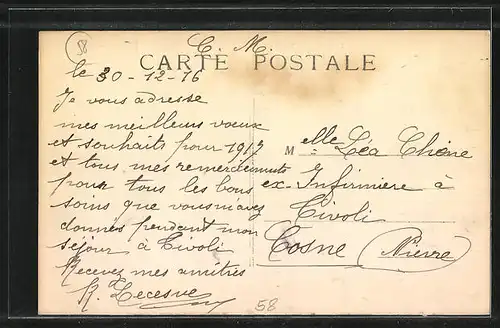 58
C. M.
CARTE POSTALE
le 30-12-16
Je vous adresse
mes meilleurs voeux
et souhaits pour 1917
et tous mes remerciments
pour tous les bons
soins que vous m'avez
donnés pendent mon
séjour à Tivoli
Recevez mes amitiés
R. Lecesne
Melle Léa Chêne
ex-Infirmière à
Tivoli
Cosne (Nièvre)
58